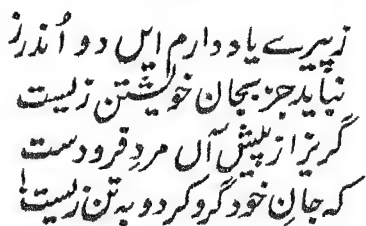 زپیرے یاد دارم ایں دو اُندرز
نباید جز بجان خویشتن زیست
گریز از پیشِ آں مردِ فرودست
که جانِ خود گرو کرد و به تن زیست!